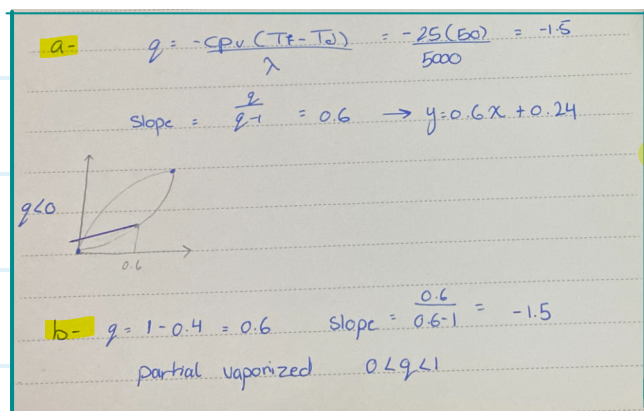 a- q = -CPv (TF-Td) / λ = -25(50) / 5000 = -1.5
slope = q / q-1 = 0.6 → y=0.6x+0.24
q<0
0.6
b- q = 1-0.4 = 0.6 slope = 0.6 / 0.6-1 = -1.5
partial vaporized 0<q<1